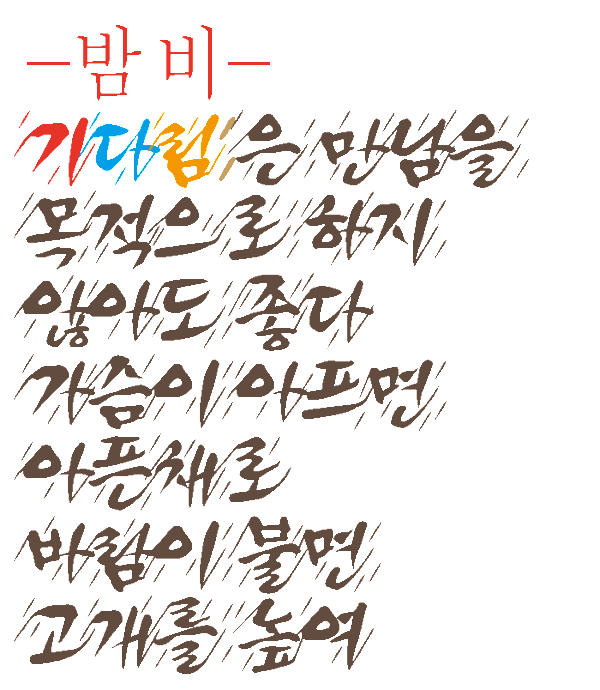 －밤 비－
기다림은 만남을
목적으로 하지
않아도 좋다
가슴이 아프면
아픈채로
바람이 불면
고개를 높여